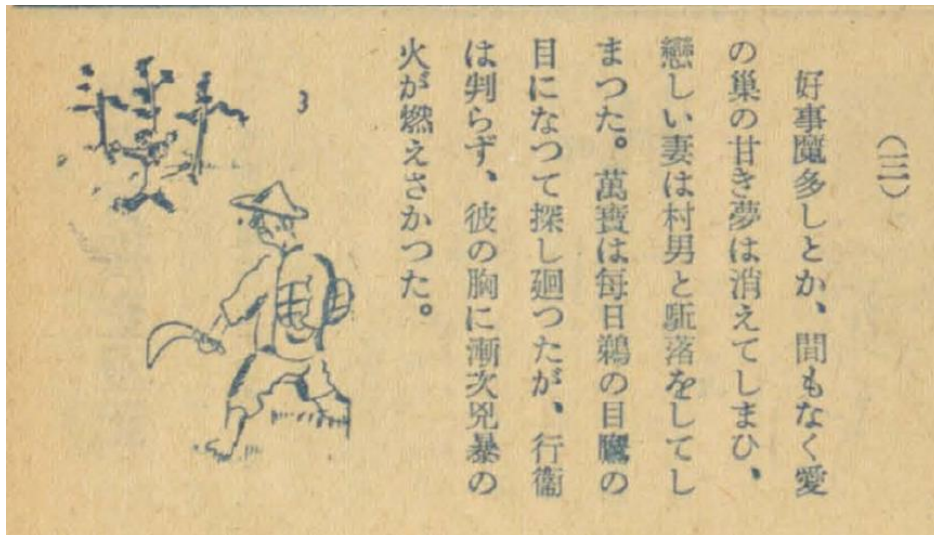 (三)
好事魔多しとか、間もなく愛
の巣の甘き夢は消えてしまひ、
戀しい妻は村男と駈落をしてし
まつた。萬寶は毎日鵜の目鷹の
目になつて探し廻つたが、行衞
は判らず、彼の胸に漸次兇暴の
火が燃えさかつた。
3